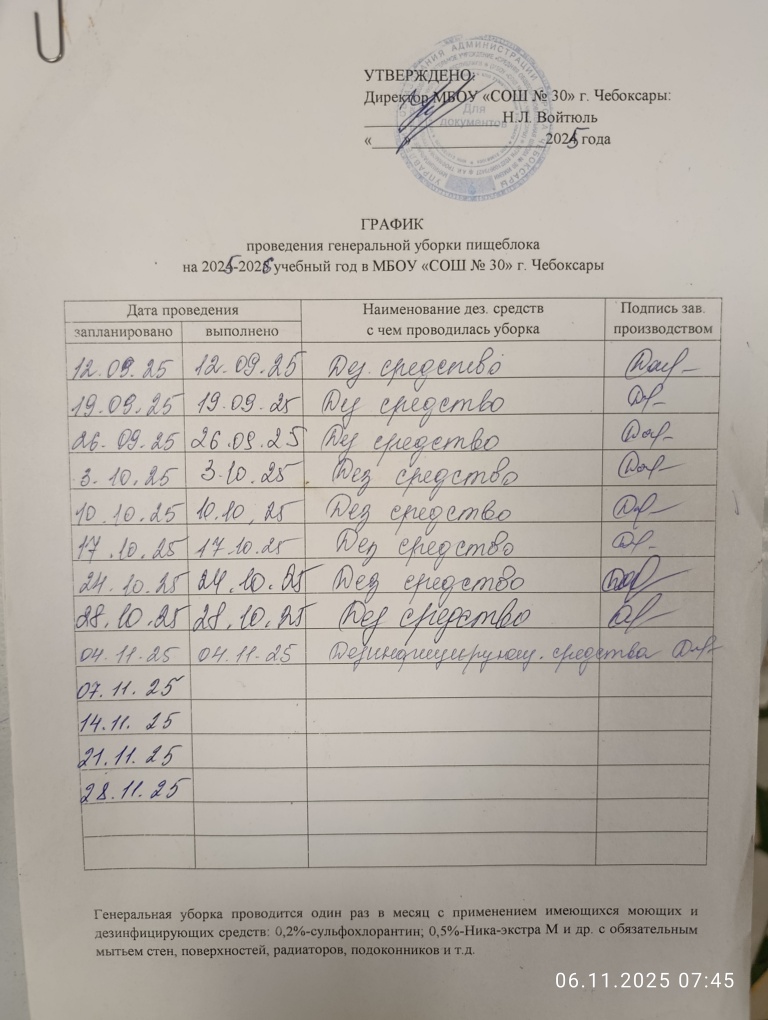 УТВЕРЖДЕНО:
Директор МБОУ «СОШ № 30» г. Чебоксары:
Н.Л. Войтюль
«___»____________2025 года
Для документов
ГРАФИК
проведения генеральной уборки пищеблока
на 2025-2026 учебный год в МБОУ «СОШ № 30» г. Чебоксары
Дата проведения Наименование дез. средств Подпись зав.
запланировано выполнено с чем проводилась уборка производством
12.09.25 12.09.25 Дез. средство
19.09.25 19.09.25 Дез средство
26.09.25 26.09.25 Дез средство
3.10.25 3.10.25 Дез средство
10.10.25 10.10.25 Дез средство
17.10.25 17.10.25 Дез средство
24.10.25 24.10.25 Дез средство
28.10.25 28.10.25 Дез средство
04.11.25 04.11.25 Дезинфицирующ. средства
07.11.25
14.11.25
21.11.25
28.11.25
Генеральная уборка проводится один раз в месяц с применением имеющихся моющих и
дезинфицирующих средств: 0,2%-сульфохлорантин; 0,5%-Ника-экстра М и др. с обязательным
мытьем стен, поверхностей, радиаторов, подоконников и т.д.
06.11.2025 07:45